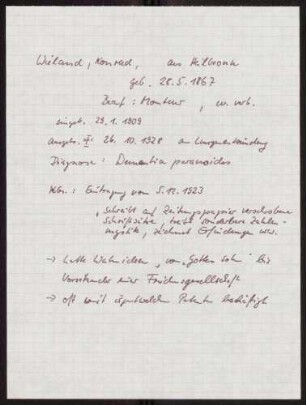 Wieland, Konrad, aus Heilbronn
geb. 28.5.1867
Beruf: Monteur, w. verh.
eingel. 29.1.1909
ausgetr. 26.10.1928 an Lungenentzündung
Diagnose: Dementia paranoides
Eintragung vom 5.12.1923
"schreibt auf Zeitungspapier verschrobene
Schriftsätze, treibt sonderbare Zahlen-
mystik, zeichnet Erfindungen usw.
→ hatte Wahnideen, von "Gottes Sohn" bis
Vorsitzender einer Friedensgesellschaft
→ oft mit irgendwelchen Patenten beschäftigt